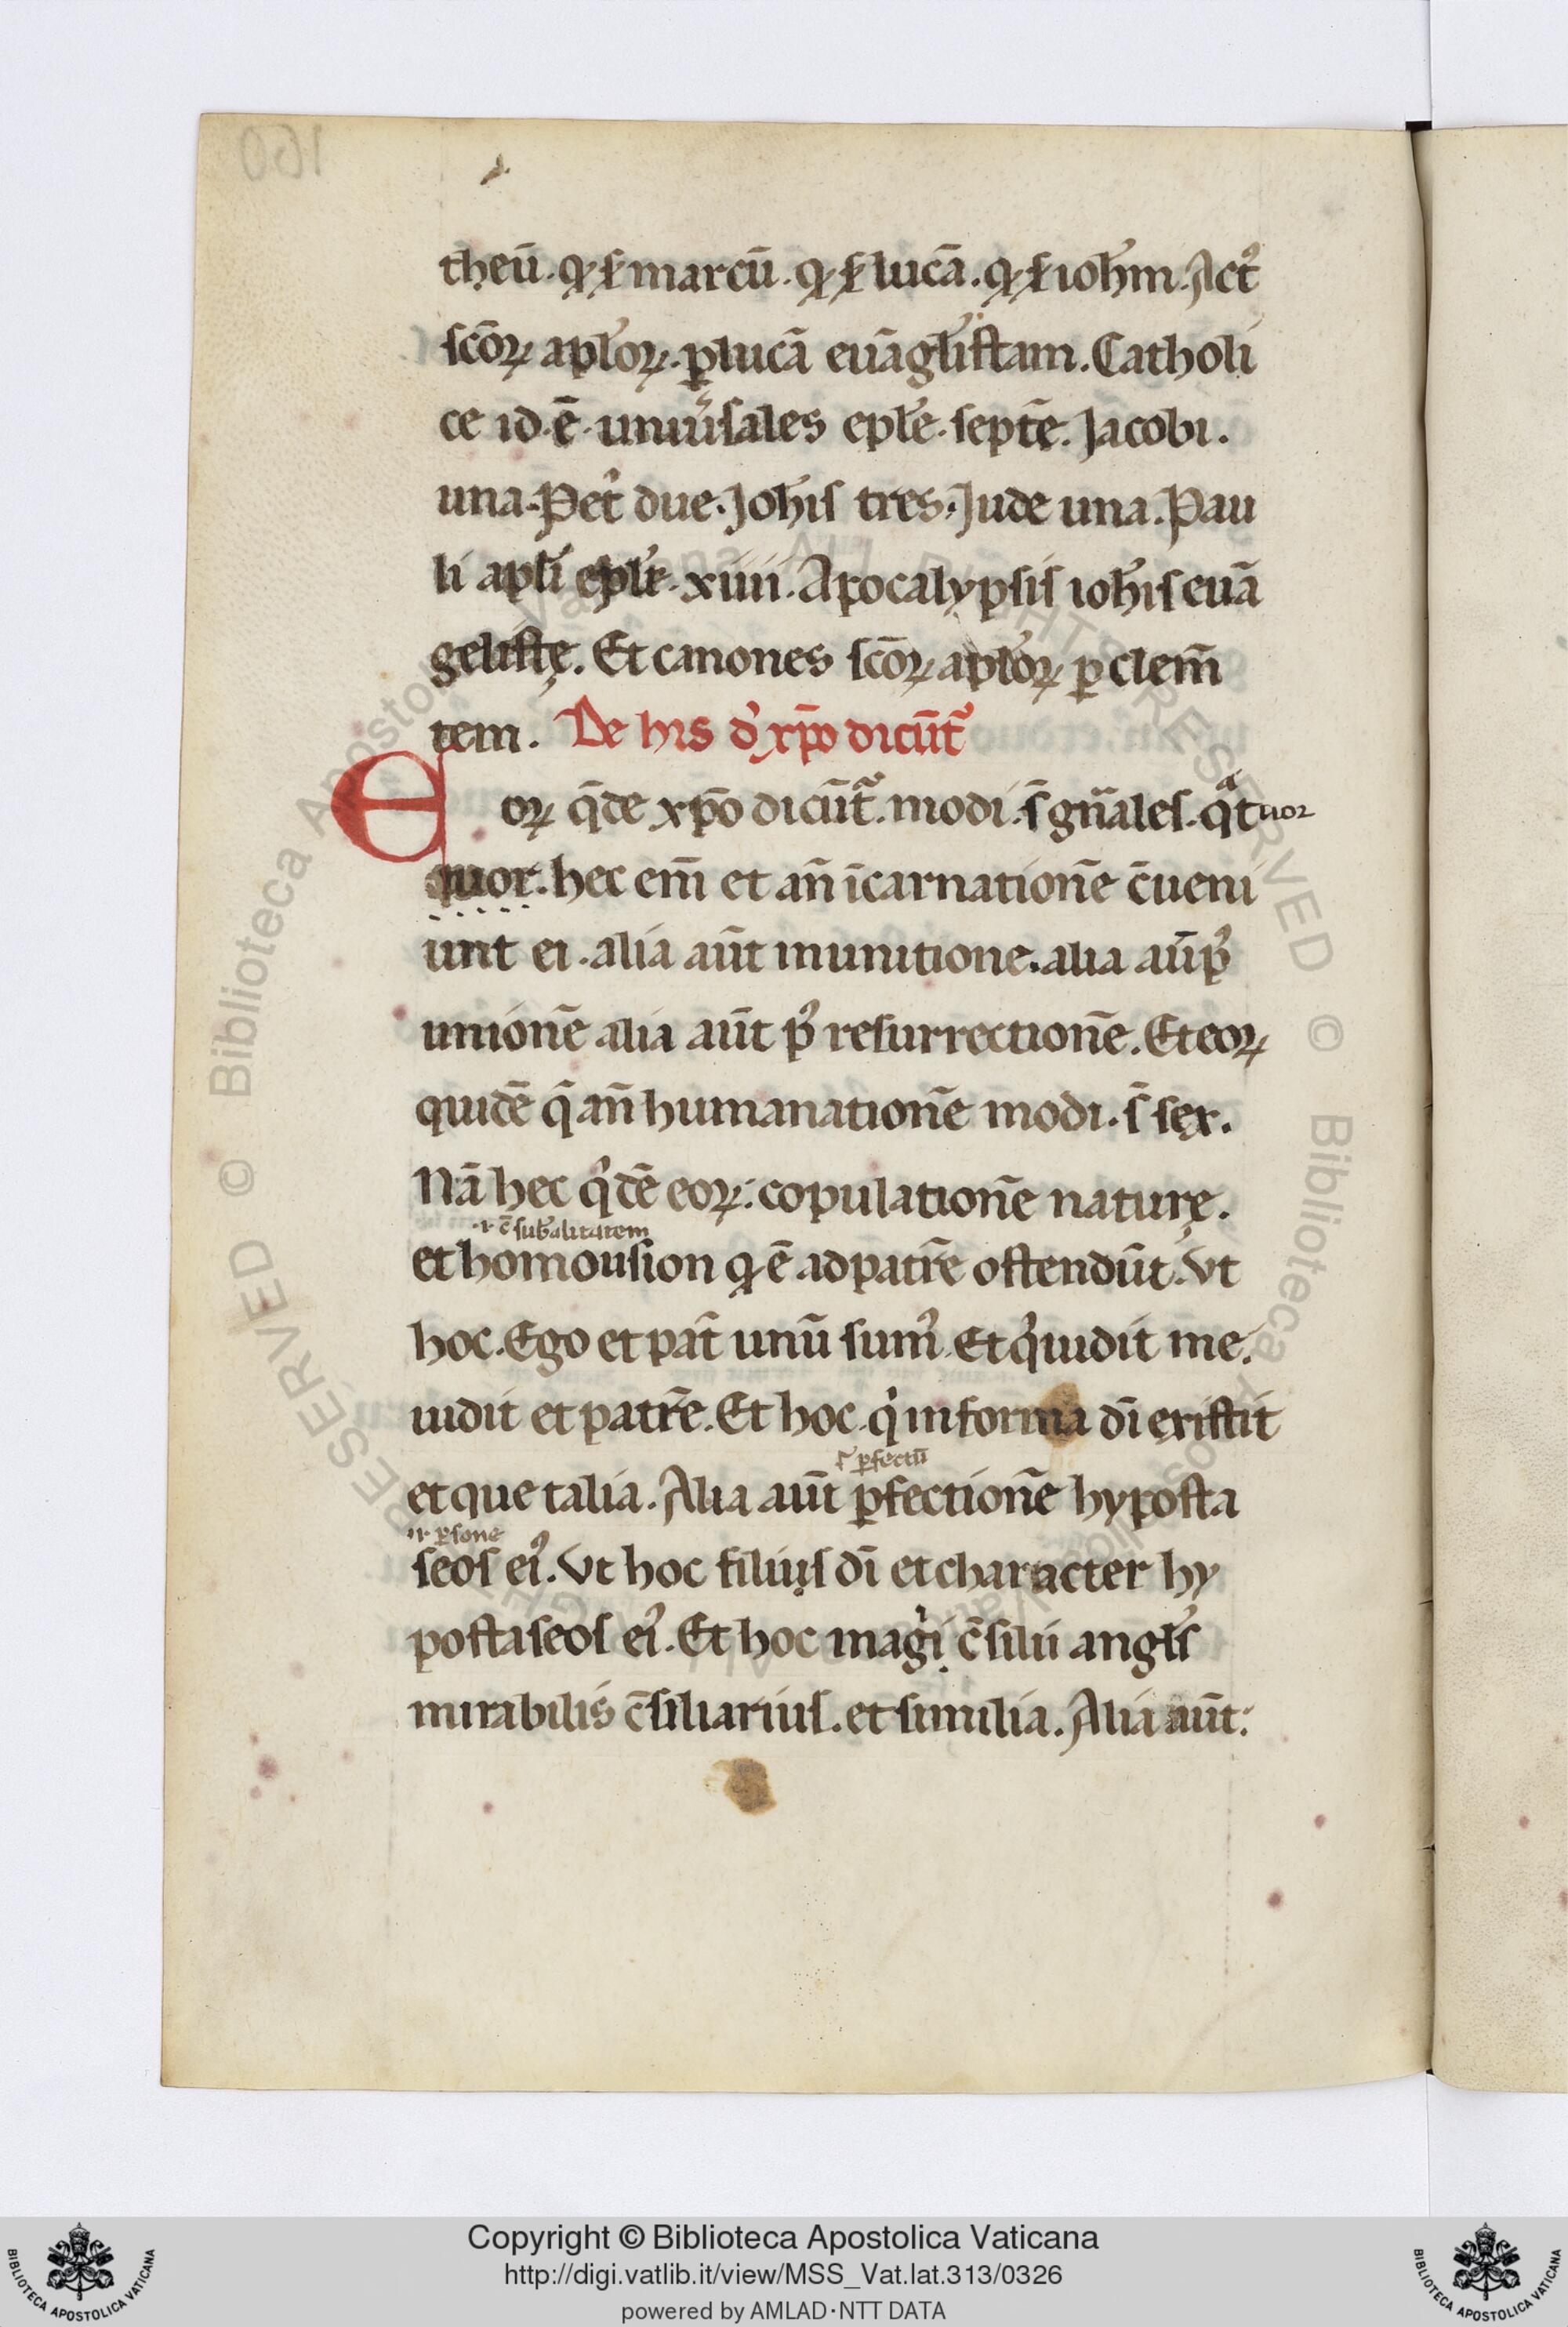 theū. qꝫ ẜ marcū. qꝫ ẜ lucā. qꝫ ẜ ioh̄m. Actꝰ
scōꝝ apl̄oꝝ. ꝑ lucā euāgl̄istam. Catholi
ce id. ē. uniu̾sales epl̄e. septē. Jacobi.
una. Petͥ due. Joh̄is tres. Jude una. Pau
li apl̄i epl̄e. xiiii. Apocalypsis ioh̄is euā
gelistę. Et canones scōꝝ apl̄oꝝ ꝑ clem̄
tem. De his d̾ xp̄o dicūt᷑
Eoꝝ q̄ de xp̄o dicūt᷑. modi. s̄ gn̄ales. qᷓtuor
quor. hec em̄ et an̄ īcarnationē c̄ueni
unt ei. alia aūt in unitione. alia aū pꝰ
unionē alia aūt pꝰ resurrectionē. Et eoꝝ
quidē q̄ an̄ humanationē modi. s̄ sex.
Nā hec qͥdē eoꝝ: copulationē naturę.
.i. c̄sub̄alitatem
et homousion qꝫ ē ad patrē ostendūt. Vt
hoc. Ego et pat̄ unū sumꝰ. Et qͥ uidit me.
uidit et patrē. Et hoc. qͥ in forma dī existit
ł ꝑfectū
et que talia. Alia aūt ꝑfectionē hyposta
.i. ꝑsone
seos eiꝰ. Vt hoc filius dī et character hy
postaseos eiꝰ. Et hoc magͥi c̄silii angl̄s
mirabilis c̄siliarius. et similia. Alia aūt:
160
© Biblioteca Apostolica Vaticana ALL RIGHTS RESERVED
© Biblioteca Apostolica Vaticana ALL RIGHTS RESERVED
Copyright © Biblioteca Apostolica Vaticana
http://digi.vatlib.it/view/MSS_Vat.lat.313/0326
powered by AMLAD·NTT DATA
BIBLIOTECA APOSTOLICA VATICANA
BIBLIOTECA APOSTOLICA VATICANA